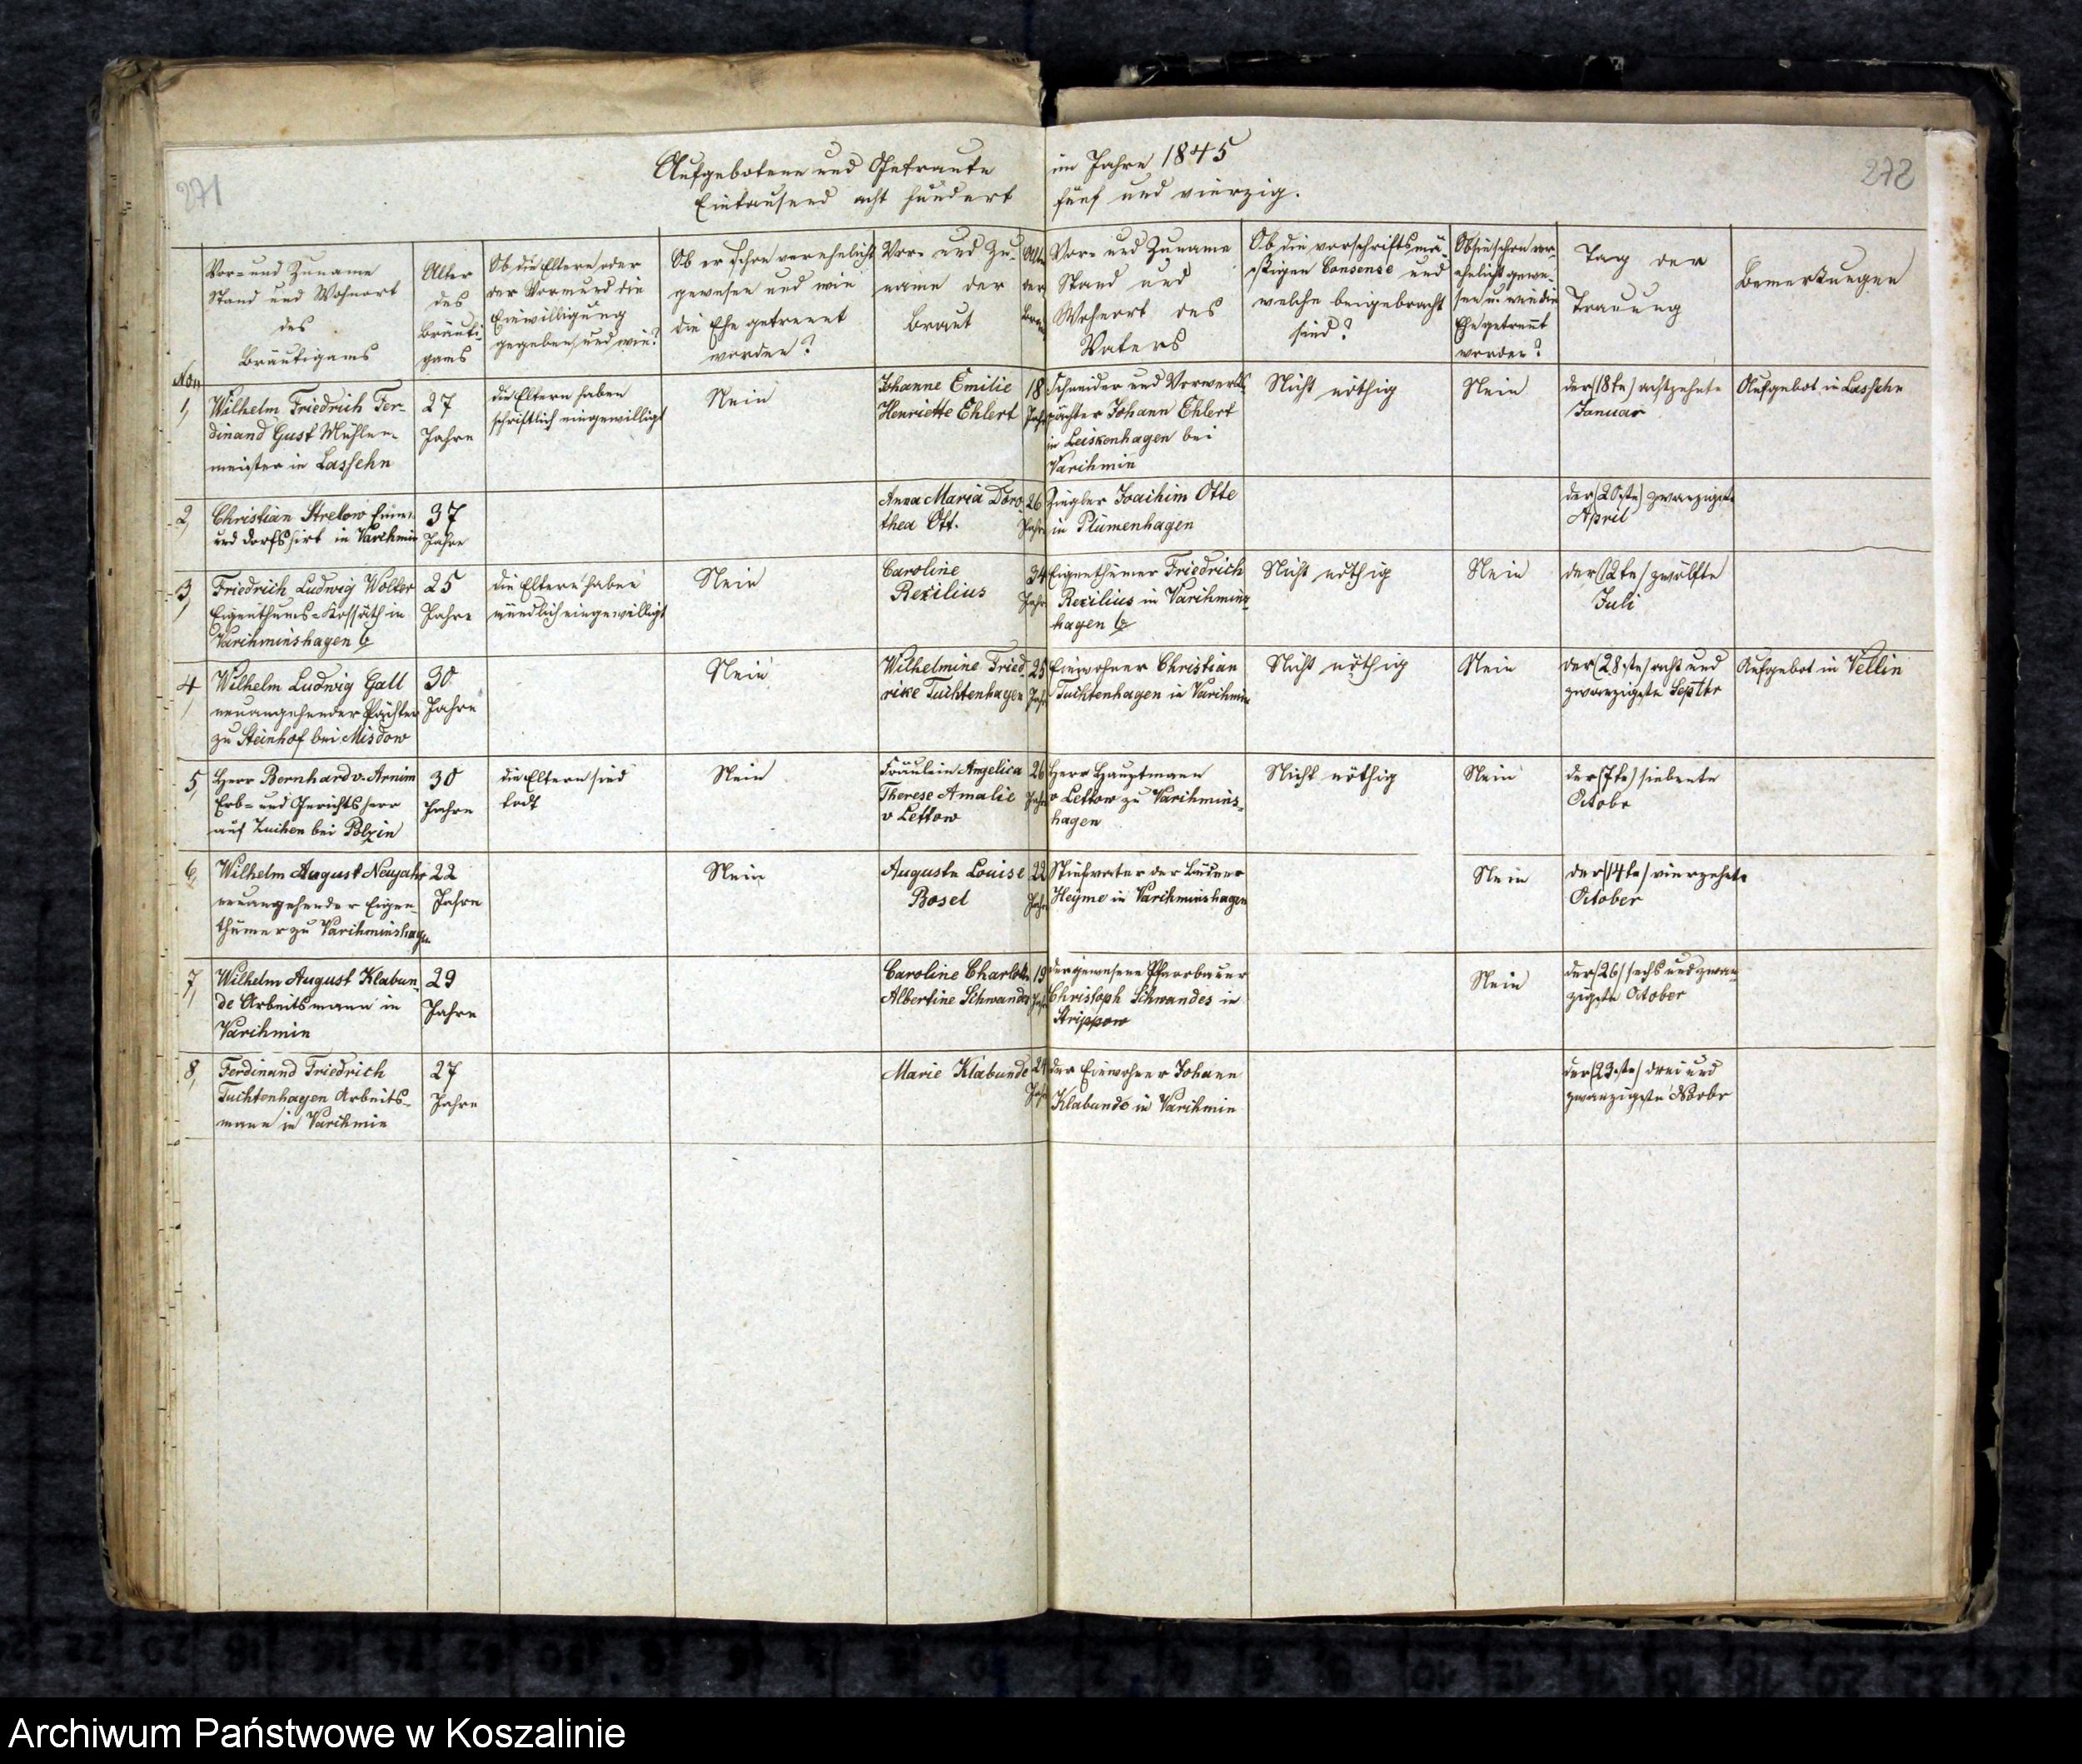 271
Aufgebotene und Getraute im Jahre 1845
Eintausend acht hundert fünf und vierzig.
272
Non
Vor- und Zuname
Stand und Wohnort
des
Bräutigams
Alter
des
Bräuti-
gams
Ob die Eltern oder
der Vormund die
Einwilligung
gegeben, und wie?
Ob er schon verehelicht
gewesen und wie
die Ehe getrennt
worden?
Vor- und Zu-
name der
Braut
Alter
der
Braut
Vor- und Zuname
Stand und
Wohnort des
Vaters
Ob die vorschriftsmä-
ßigen Consense und
welche beigebracht
sind?
Ob sie schon ver-
ehelicht gewe-
sen u. wie die
Ehe getrennt
worden?
Tag der
Trauung
Bemerkungen
1,
Wilhelm Friedrich Fer-
dinand Gust Mühlen-
meister in Lassehn
27
Jahre
die Eltern haben
schriftlich eingewilligt
Nein
Johanne Emilie
Henriette Ehlert
18
Jahr
Schneider und Vorwerks
pächter Johann Ehlert
in Leiskenhagen bei
Varchmin
Nicht nöthig
Nein
der (18te) achtzehnte
Januar
Aufgebot in Lassehn
2,
Christian Strelow Einw.
und Dorfshirt in Varchmin
37
Jahre
Anna Maria Doro
thea Ott.
26
Jahr
Ziegler Joachim Otte
in Plümenhagen
der (20ste) zwanzigste
April
3,
Friedrich Ludwig Wolter
Eigenthums-Kossäth in
Varchminshagen b
25
Jahre
die Eltern haben
mündlich eingewilligt
Nein
Caroline
Rexilius
34
Jahr
Eigenthümer Friedrich
Rexilius in Varchmins-
hagen b
Nicht nöthig
Nein
der (12te) zwölfte
Juli
4
Wilhelm Ludwig Gall
neuangehender Pächter
zu Steinhof bei Misdow
30
Jahre
Nein
Wilhelmine Fried-
rike Tuchtenhagen
25
Jahr
Einwohner Christian
Tuchtenhagen in Varchmin
Nicht nöthig
Nein
der (28ste) acht und
zwanzigste Septbr
Aufgebot in Vellin
5,
Herr Bernhard v. Arnim
Erb- und Gerichtsherr
auf Zuchen bei Polzin
30
Jahre
die Eltern sind
todt
Nein
Fräulein Angelica
Therese Amalie
v Lettow
26
Jahr
Herr Hauptmann
v Lettow zu Varchmins-
hagen
Nicht nöthig
Nein
der (7te) siebente
Octobr
6,
Wilhelm August Neujahr
neuangehender Eigen-
thümer zu Varchminshagn
22
Jahre
Nein
Auguste Louise
Bosel
22
Jahr
Stiefvater der Büdner
Heyme in Varchminshagen
Nein
der (14te) vierzehnte
October
7,
Wilhelm August Klabun-
de Arbeitsmann in
Varchmin
29
Jahre
Caroline Charlotte
Albertine Schwandes
19
Jahr
der gewesene Pfarrbauer
Christoph Schwandes in
Strippow
Nein
der (26) sechs und zwan
zigste October
8,
Ferdinand Friedrich
Tuchtenhagen Arbeits-
mann in Varchmin
27
Jahre
Marie Klabunde
24
Jahr
der Einwohner Johann
Klabunde in Varchmin
der (23ste) drei und
zwanzigste Novbr
Archiwum Państwowe w Koszalinie